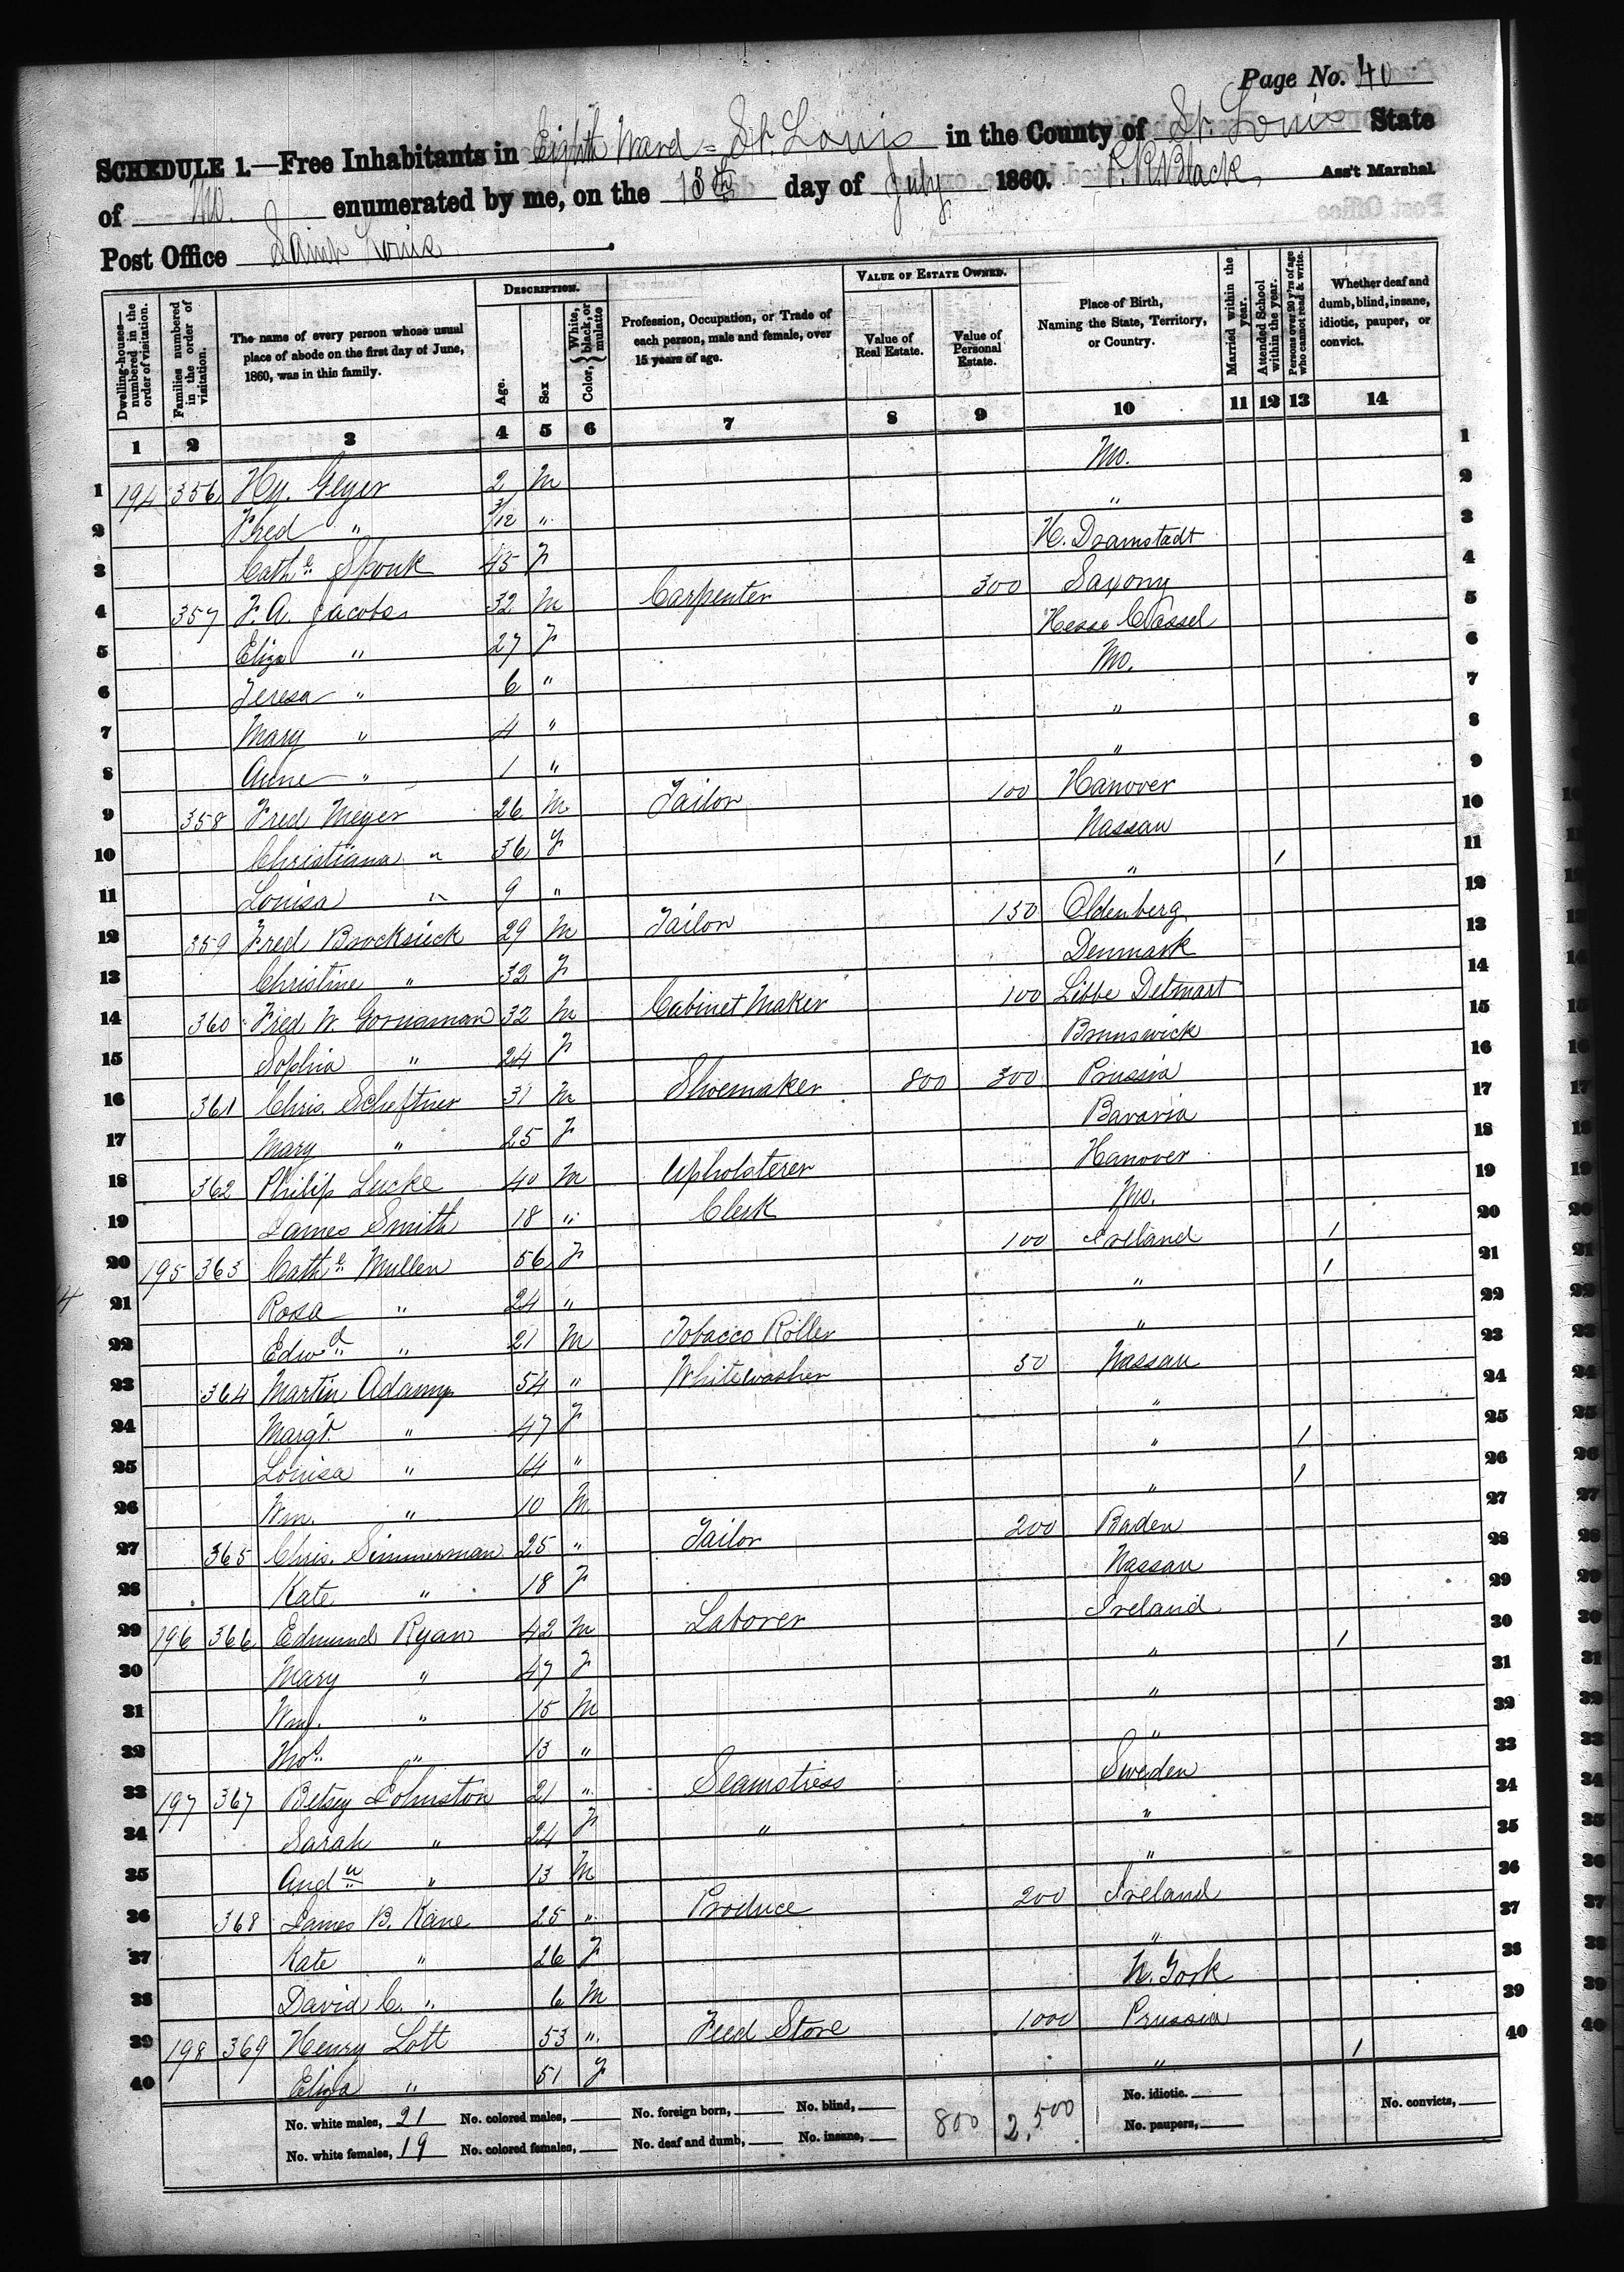 Page No. 40
SCHEDULE 1.—Free Inhabitants in Eighth Ward = St. Louis in the County of St. Louis State
of Mo. enumerated by me, on the 13th day of July 1860. Black, Ass't Marshal
Post Office Saint Louis
Dwelling-houses—numbered in the order of visitation. Families numbered in the order of visitation. The name of every person whose usual place of abode on the first day of June, 1860, was in this family. Description. Age. Sex Color, { White, black, or mulatto Profession, Occupation, or Trade of each person, male and female, over 15 years of age. Value of Estate Owned. Value of Real Estate. Value of Personal Estate. Place of Birth, Naming the State, Territory, or Country. Married within the year. Attended School within the year. Persons over 20 y'rs of age who cannot read & write. Whether deaf and dumb, blind, insane, idiotic, pauper, or convict.
1 2 3 4 5 6 7 8 9 10 11 12 13 14
1 194 356 Hy. Geyer 2 M Mo. 1
2 Fred " 3/12 " " 2
3 Cathe Spouk 45 F H. Dramstadt 3
4 357 F. A. Jacobs 32 M Carpenter 300 Saxony 4
5 Eliza " 27 F Hesse Cassel 5
6 Teresa " 6 " Mo. 6
7 Mary " 4 " " 7
8 Anne " 1 " " 8
9 358 Fred Meyer 26 M Tailor 100 Hanover 9
10 Christiana " 36 F Nassau 10
11 Louisa " 9 " " 1 11
12 359 Fred Brocksieck 29 M Tailor 150 Oldenberg 12
13 Christine " 32 F Denmark 13
14 360 Fred W. Gornaman 32 M Cabinet Maker 100 Libbe Detmart 14
15 Sophia " 24 F Brunswick 15
16 361 Chris. Scheftner 31 M Shoemaker 800 300 Prussia 16
17 Mary " 25 F Bavaria 17
18 362 Philip Lucke 40 M Upholsterer Hanover 18
19 James Smith 18 " Clerk Mo. 19
20 195 363 Cathe Mullen 56 F 100 Ireland 1 20
21 Rosa " 24 " " 1 21
22 Edwd " 21 M Tobacco Roller " 22
23 364 Martin Adamy 54 " Whitewasher 50 Nassau 23
24 Margt. " 47 F " 24
25 Louisa " 14 " " 1 25
26 Wm. " 10 M " 1 26
27 365 Chris. Simmerman 25 " Tailor 200 Baden 27
28 Kate " 18 F Nassau 28
29 196 366 Edmund Ryan 42 M Laborer Ireland 29
30 Mary " 47 F " 1 30
31 Wm. " 15 M " 31
32 Thos. " 13 " " 32
33 197 367 Betsey Johnston 21 " Seamstress Sweden 33
34 Sarah " 24 F " " 34
35 Andw " 13 M " 35
36 368 James B. Kane 25 " Produce 200 Ireland 36
37 Kate " 26 F " 37
38 David C. " 6 M N. York 38
39 198 369 Henry Lott 53 " Feed Store 1000 Prussia 39
40 Eliza " 51 F " 1 40
No. white males, 21 No. colored males, No. foreign born, No. blind, 800 2,500 No. idiotic. No. convicts,
No. white females, 19 No. colored females, No. deaf and dumb, No. insane, No. paupers,